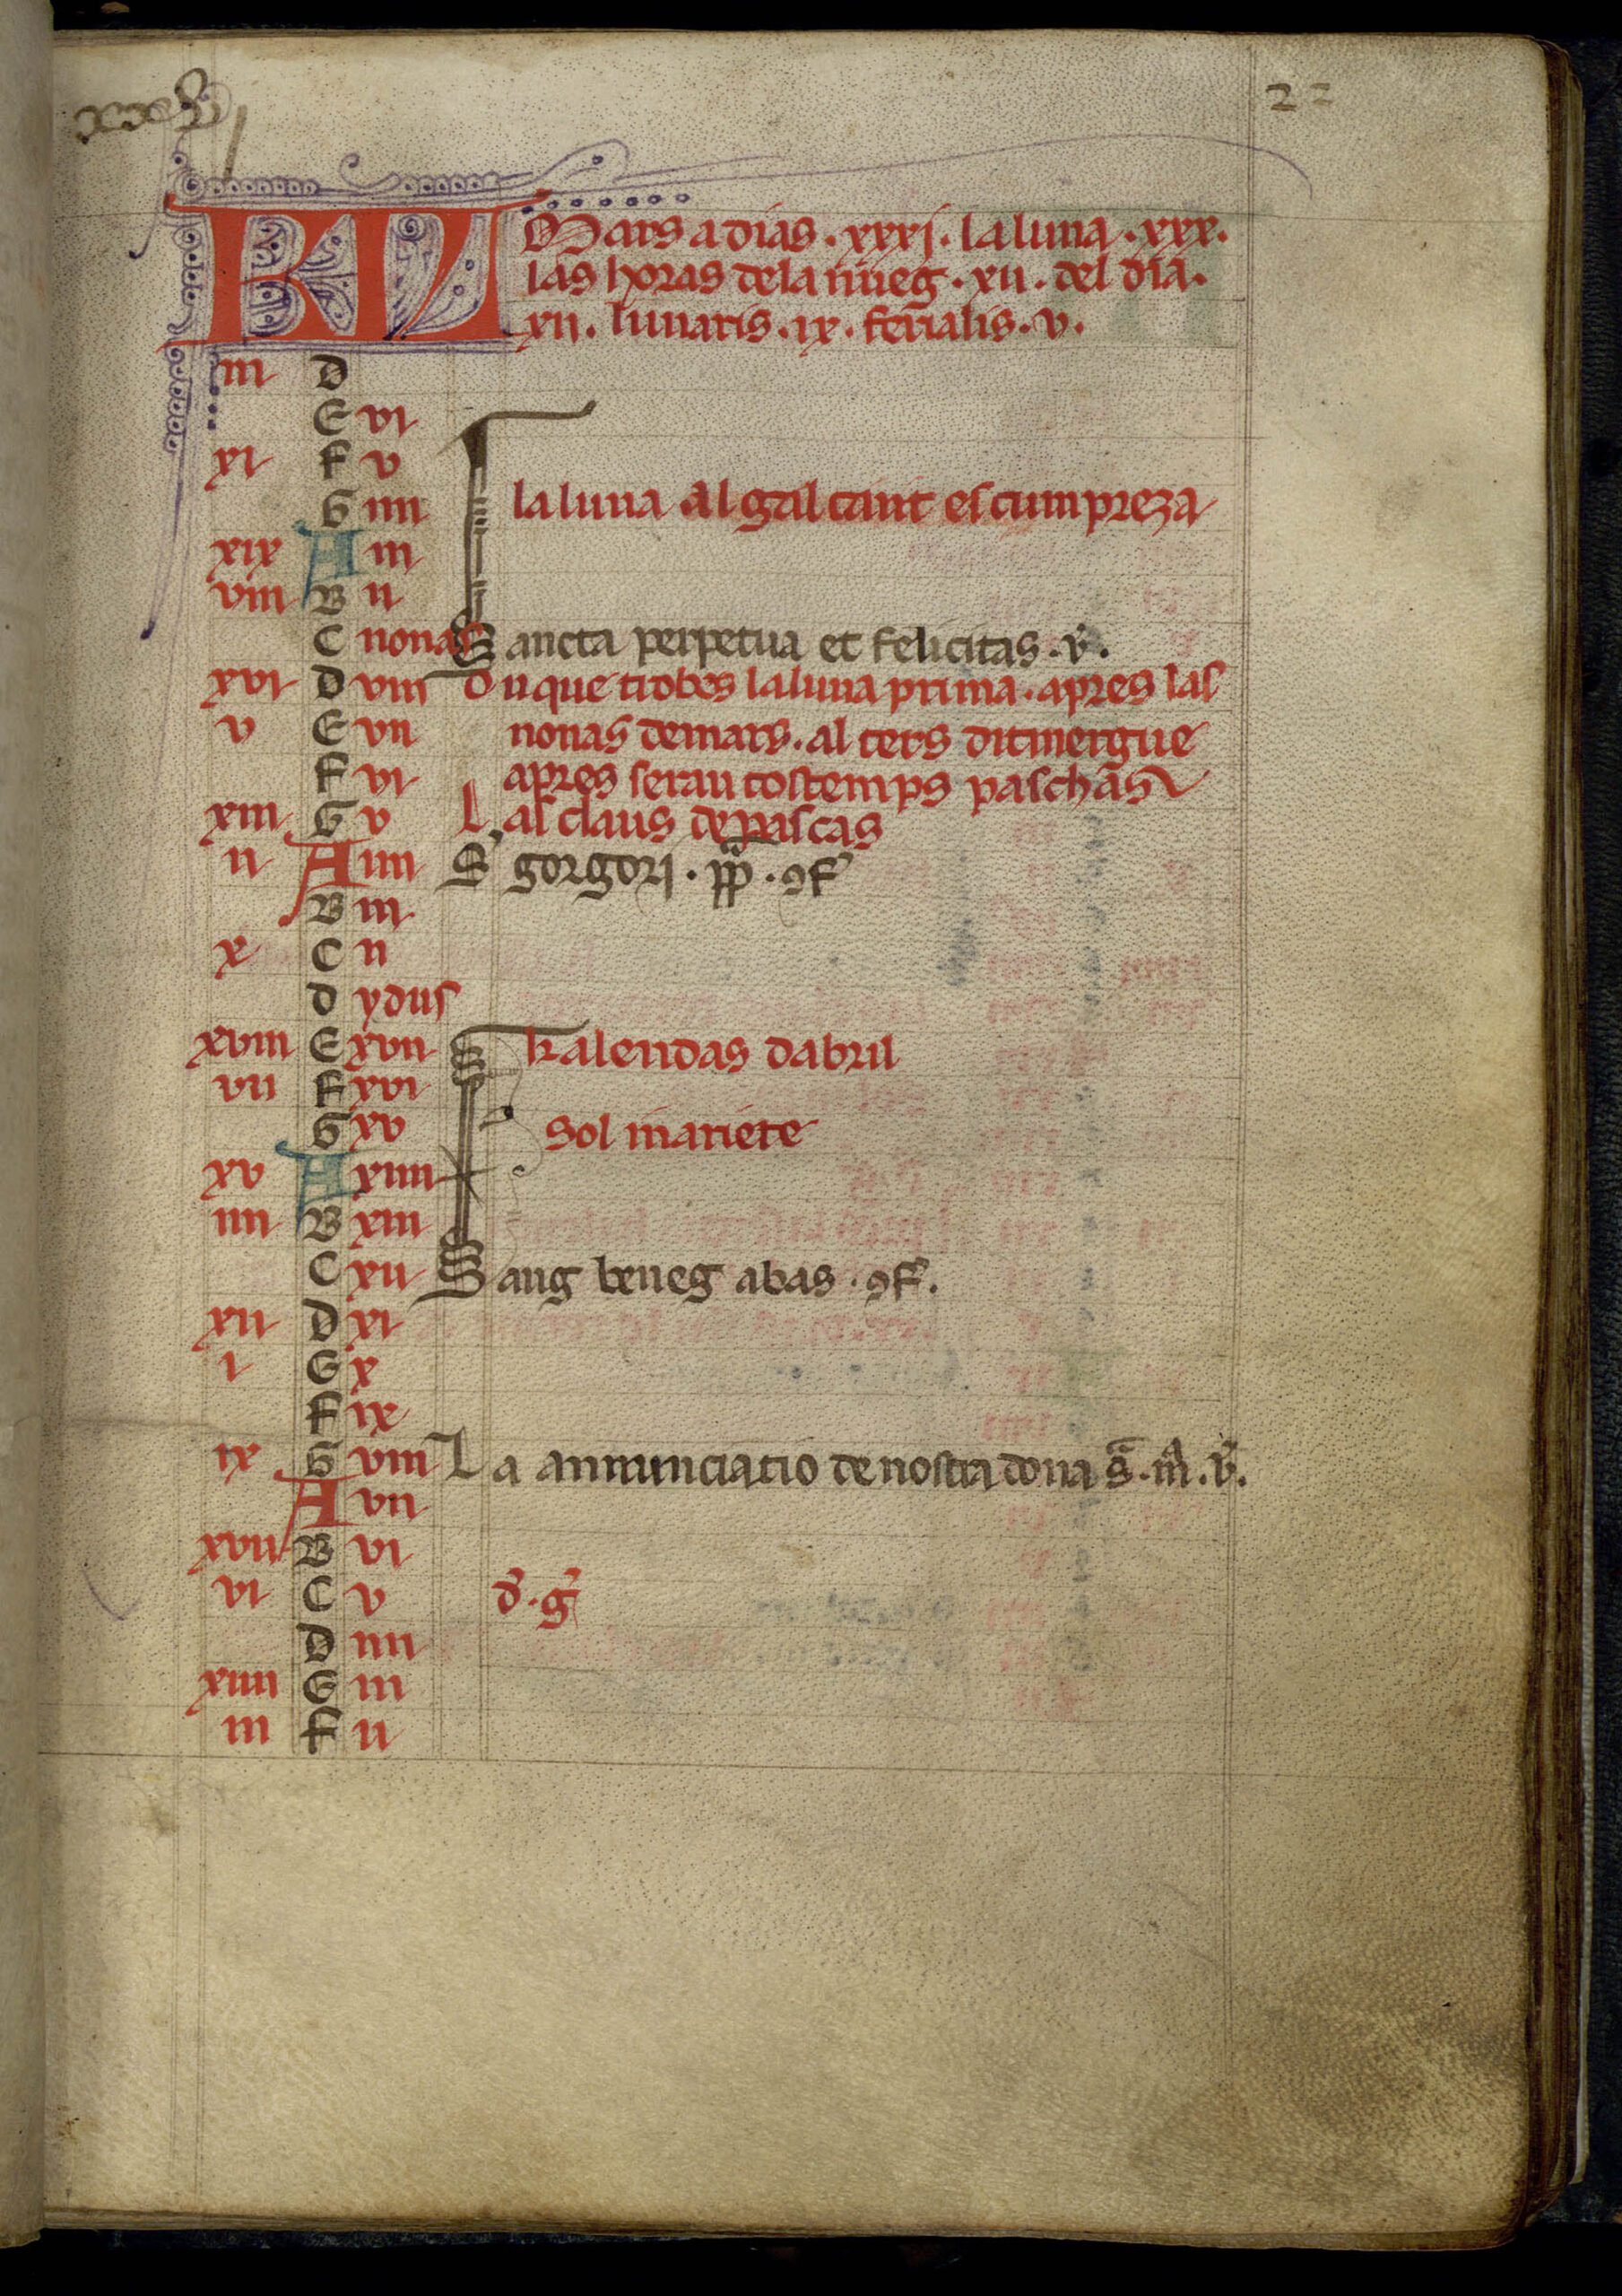 22
KL Mars a dias · xxxj · la luna · xxx ·
las horas de la nueg · xii · del dia ·
xii · lunaris · ix · ferialis · v ·
iii D
E vi
xi F v
G iiii la luna al gal cant es cum preza
xix A iii
viii B ii
C nonas Sancta perpetua et felicitas · v̄ ·
xvi D viii On que trobes la luna prima · apres las
v E vii nonas de mars · al ters dimergue
F vi apres serau tostemps paschas
xiii G v Las claus de pascas
ii A iiii S' gorgorj · pp̄ · ꝯf'
B iii
x C ii
D ydus
xviii E xvii kalendas dabril
vii F xvi
G xv Sol in ariete
xv A xiiii
iiii B xiii
C xii Sang beneg abas · ꝯf' ·
xii D xi
i E x
F ix
ix G viii La annunciatio de nostra dona s̄ · m̄ · v̄ ·
A vii
xvii B vi
vi C v d' · g'
D iiii
xiiii E iii
iii F ii